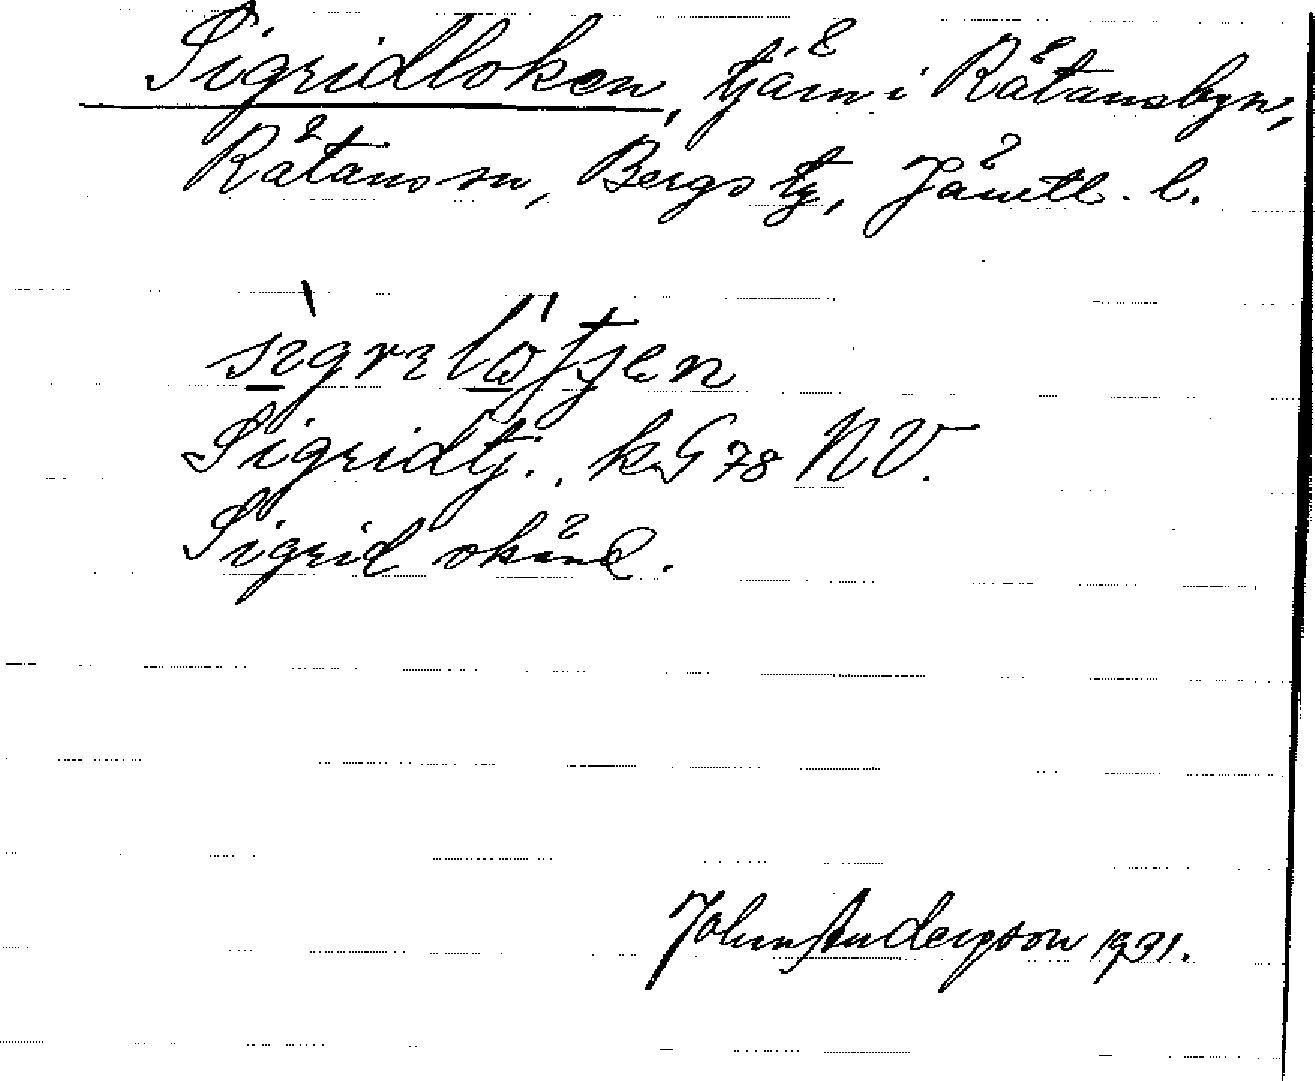 Sigridloken, tjärn i Rätansbyn,
Rätans sn, Bergs tg, Jämtl. l.
Sigridtj., kG 78 NV.
Sigrid okänd.
John Anderson 1931.